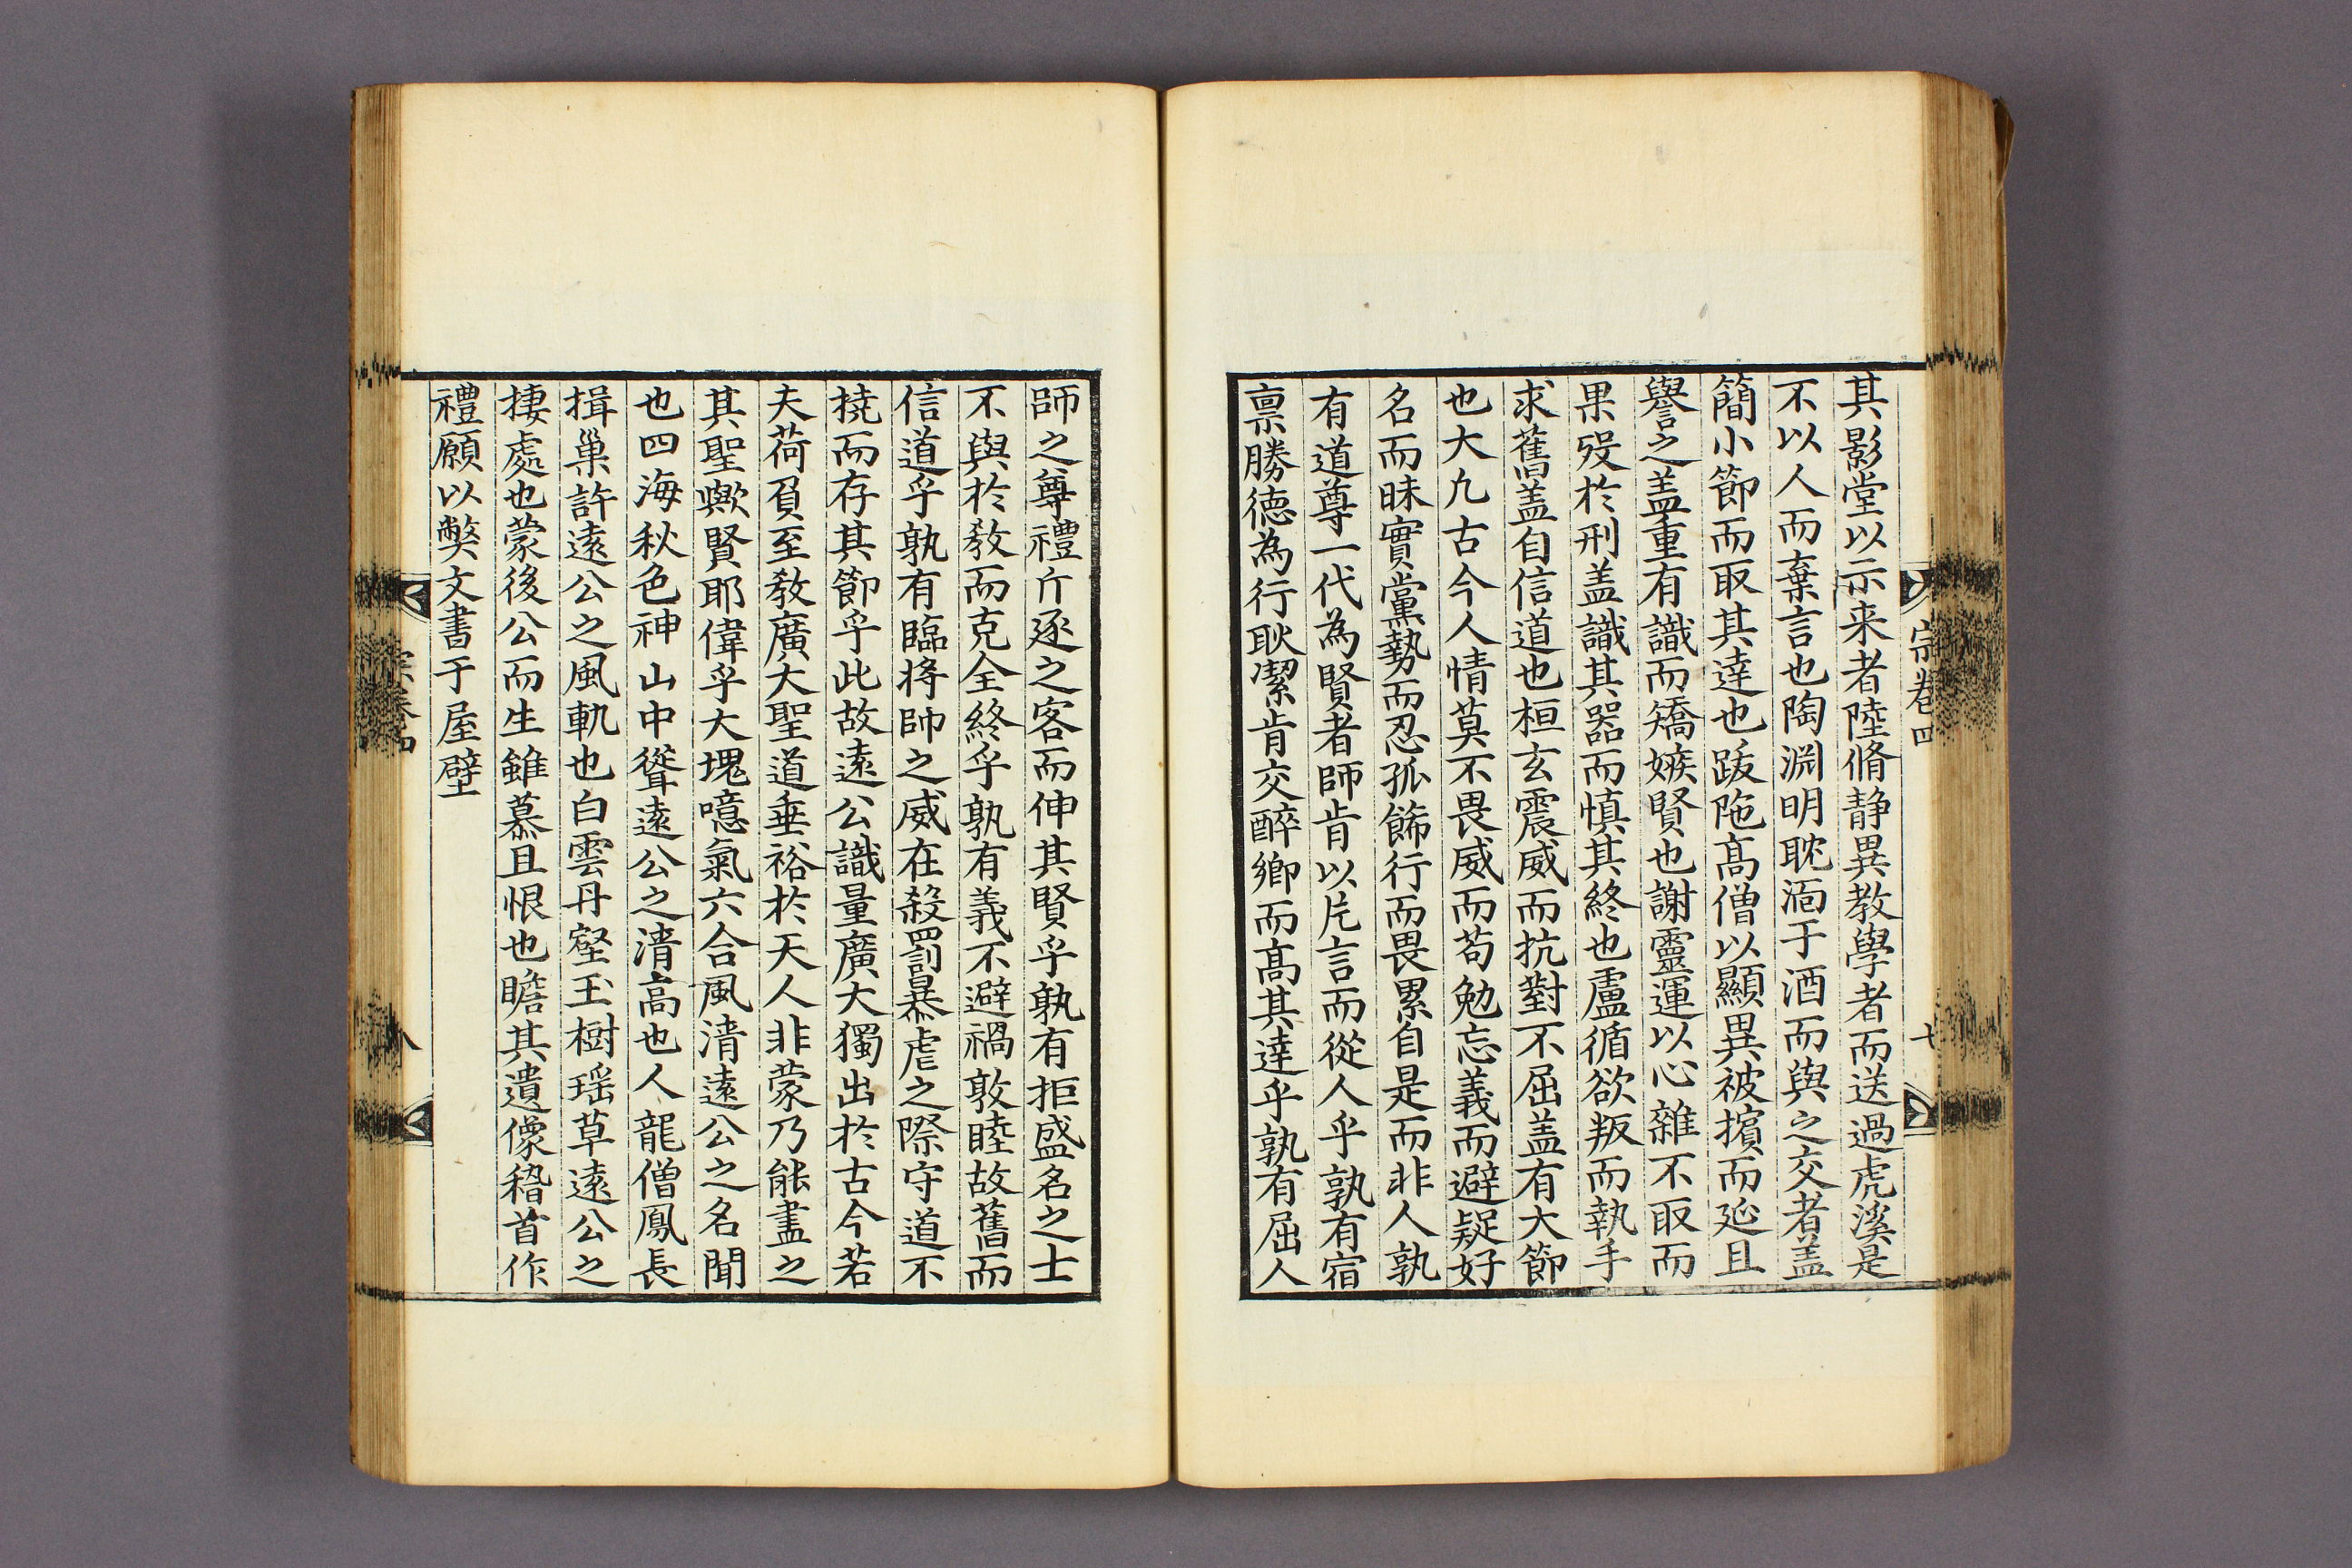 其影堂以示来者陸脩静異教學者而送過虎溪是
不以人而棄言也陶渊明耽湎于酒而與之交者盖
簡小節而取其達也跋陁髙僧以顯異被擯而延且
譽之盖重有識而矯嫉賢也謝靈運以心雜不取而
果歿於刑盖識其器而慎其終也盧循欲叛而執手
求舊盖自信道也桓玄震威而抗對不屈盖有大節
也大凢古今人情莫不畏威而苟勉忘義而避疑好
名而昧實黨勢而忍孤餙行而畏累自是而非人孰
有道尊一代為賢者師肯以片言而從人乎孰有宿
禀勝德為行耿潔肯交醉鄉而髙其達乎孰有屈人
師之尊禮斤逐之客而伸其賢乎孰有拒盛名之士
不與於教而克全終乎孰有義不避禍敦睦故舊而
信道乎孰有臨将帥之威在殺罰暴虐之際守道不
撓而存其節乎此故遠公識量廣大獨出於古今若
夫荷負至教廣大聖道垂裕於天人非蒙乃能盡之
其聖歟賢耶偉乎大塊噫氣六合風清遠公之名聞
也四海秋色神山中聳遠公之清高也人龍僧鳳長
揖巢許遠公之風軌也白雲丹壑玉樹瑶草遠公之
捿處也蒙後公而生雖慕且恨也瞻其遺像稽首作
禮願以獘文書于屋壁
宗卷四
八